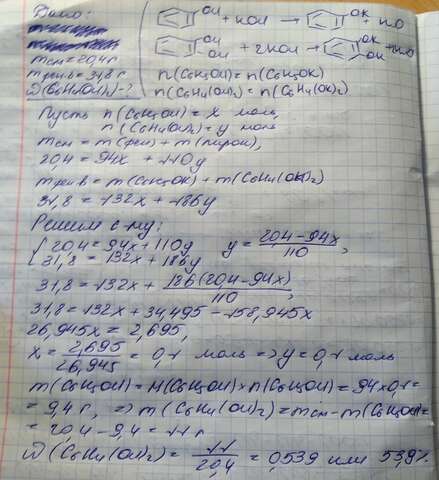 Дано:
mсм = 20,4 г
mприв = 31,8 г
ω(C6H4(OH)2) - ?
OH + KOH → OK + H2O
OH OH + 2KOH → OK OK + H2O
n(C6H5OH) = n(C6H5OK)
n(C6H4(OH)2) = n(C6H4(OK)2)
Пусть n(C6H5OH) = x моль,
n(C6H4(OH)2) = y моль
mсм = m(фен) + m(пирок),
20,4 = 94x + 110y
m = m(C6H5OK) + m(C6H4(OK)2)
31,8 = 132x + 186y
Решим с-му:
{20,4 = 94x + 110y y = 20,4 - 94x / 110,
{31,8 = 132x + 186y
31,8 = 132x + 186(20,4 - 94x) / 110,
31,8 = 132x + 34,495 - 158,945x
26,945x = 2,695,
x = 2,695 / 26,945 = 0,1 моль => y = 0,1 моль
m(C6H5OH) = M(C6H5OH) × n(C6H5OH) = 94×0,1 =
= 9,4 г, => m(C6H4(OH)2) = mсм - m(C6H5OH) =
= 20,4 - 9,4 = 11 г
ω(C6H4(OH)2) = 11 / 20,4 = 0,539 или 53,9%